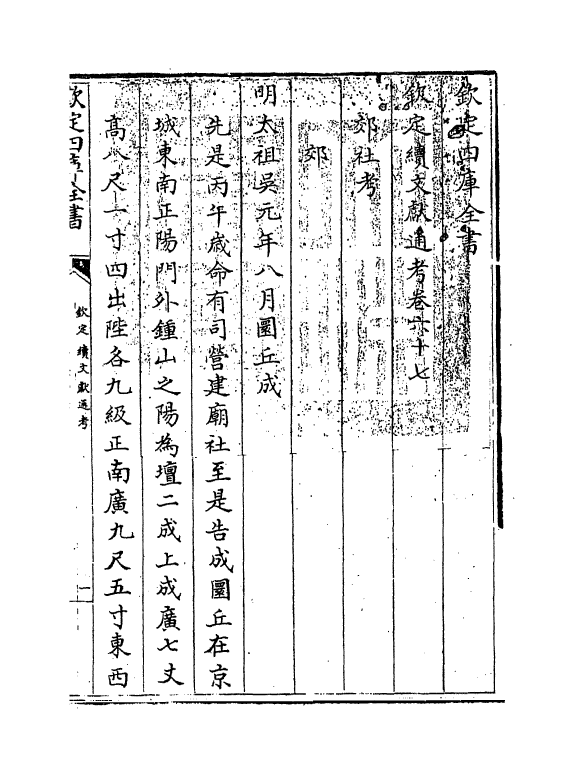 欽定四庫全書
欽定續文獻通考卷六十七
郊社考
郊
明太祖吳元年八月圜丘成
先是丙午歲命有司營建廟社至是告成圜丘在京
城東南正陽門外鍾山之陽為壇二成上成廣七丈
高八尺一寸四出陛各九級正南廣九尺五寸東西
欽定四庫全書
欽定續文獻通考
一